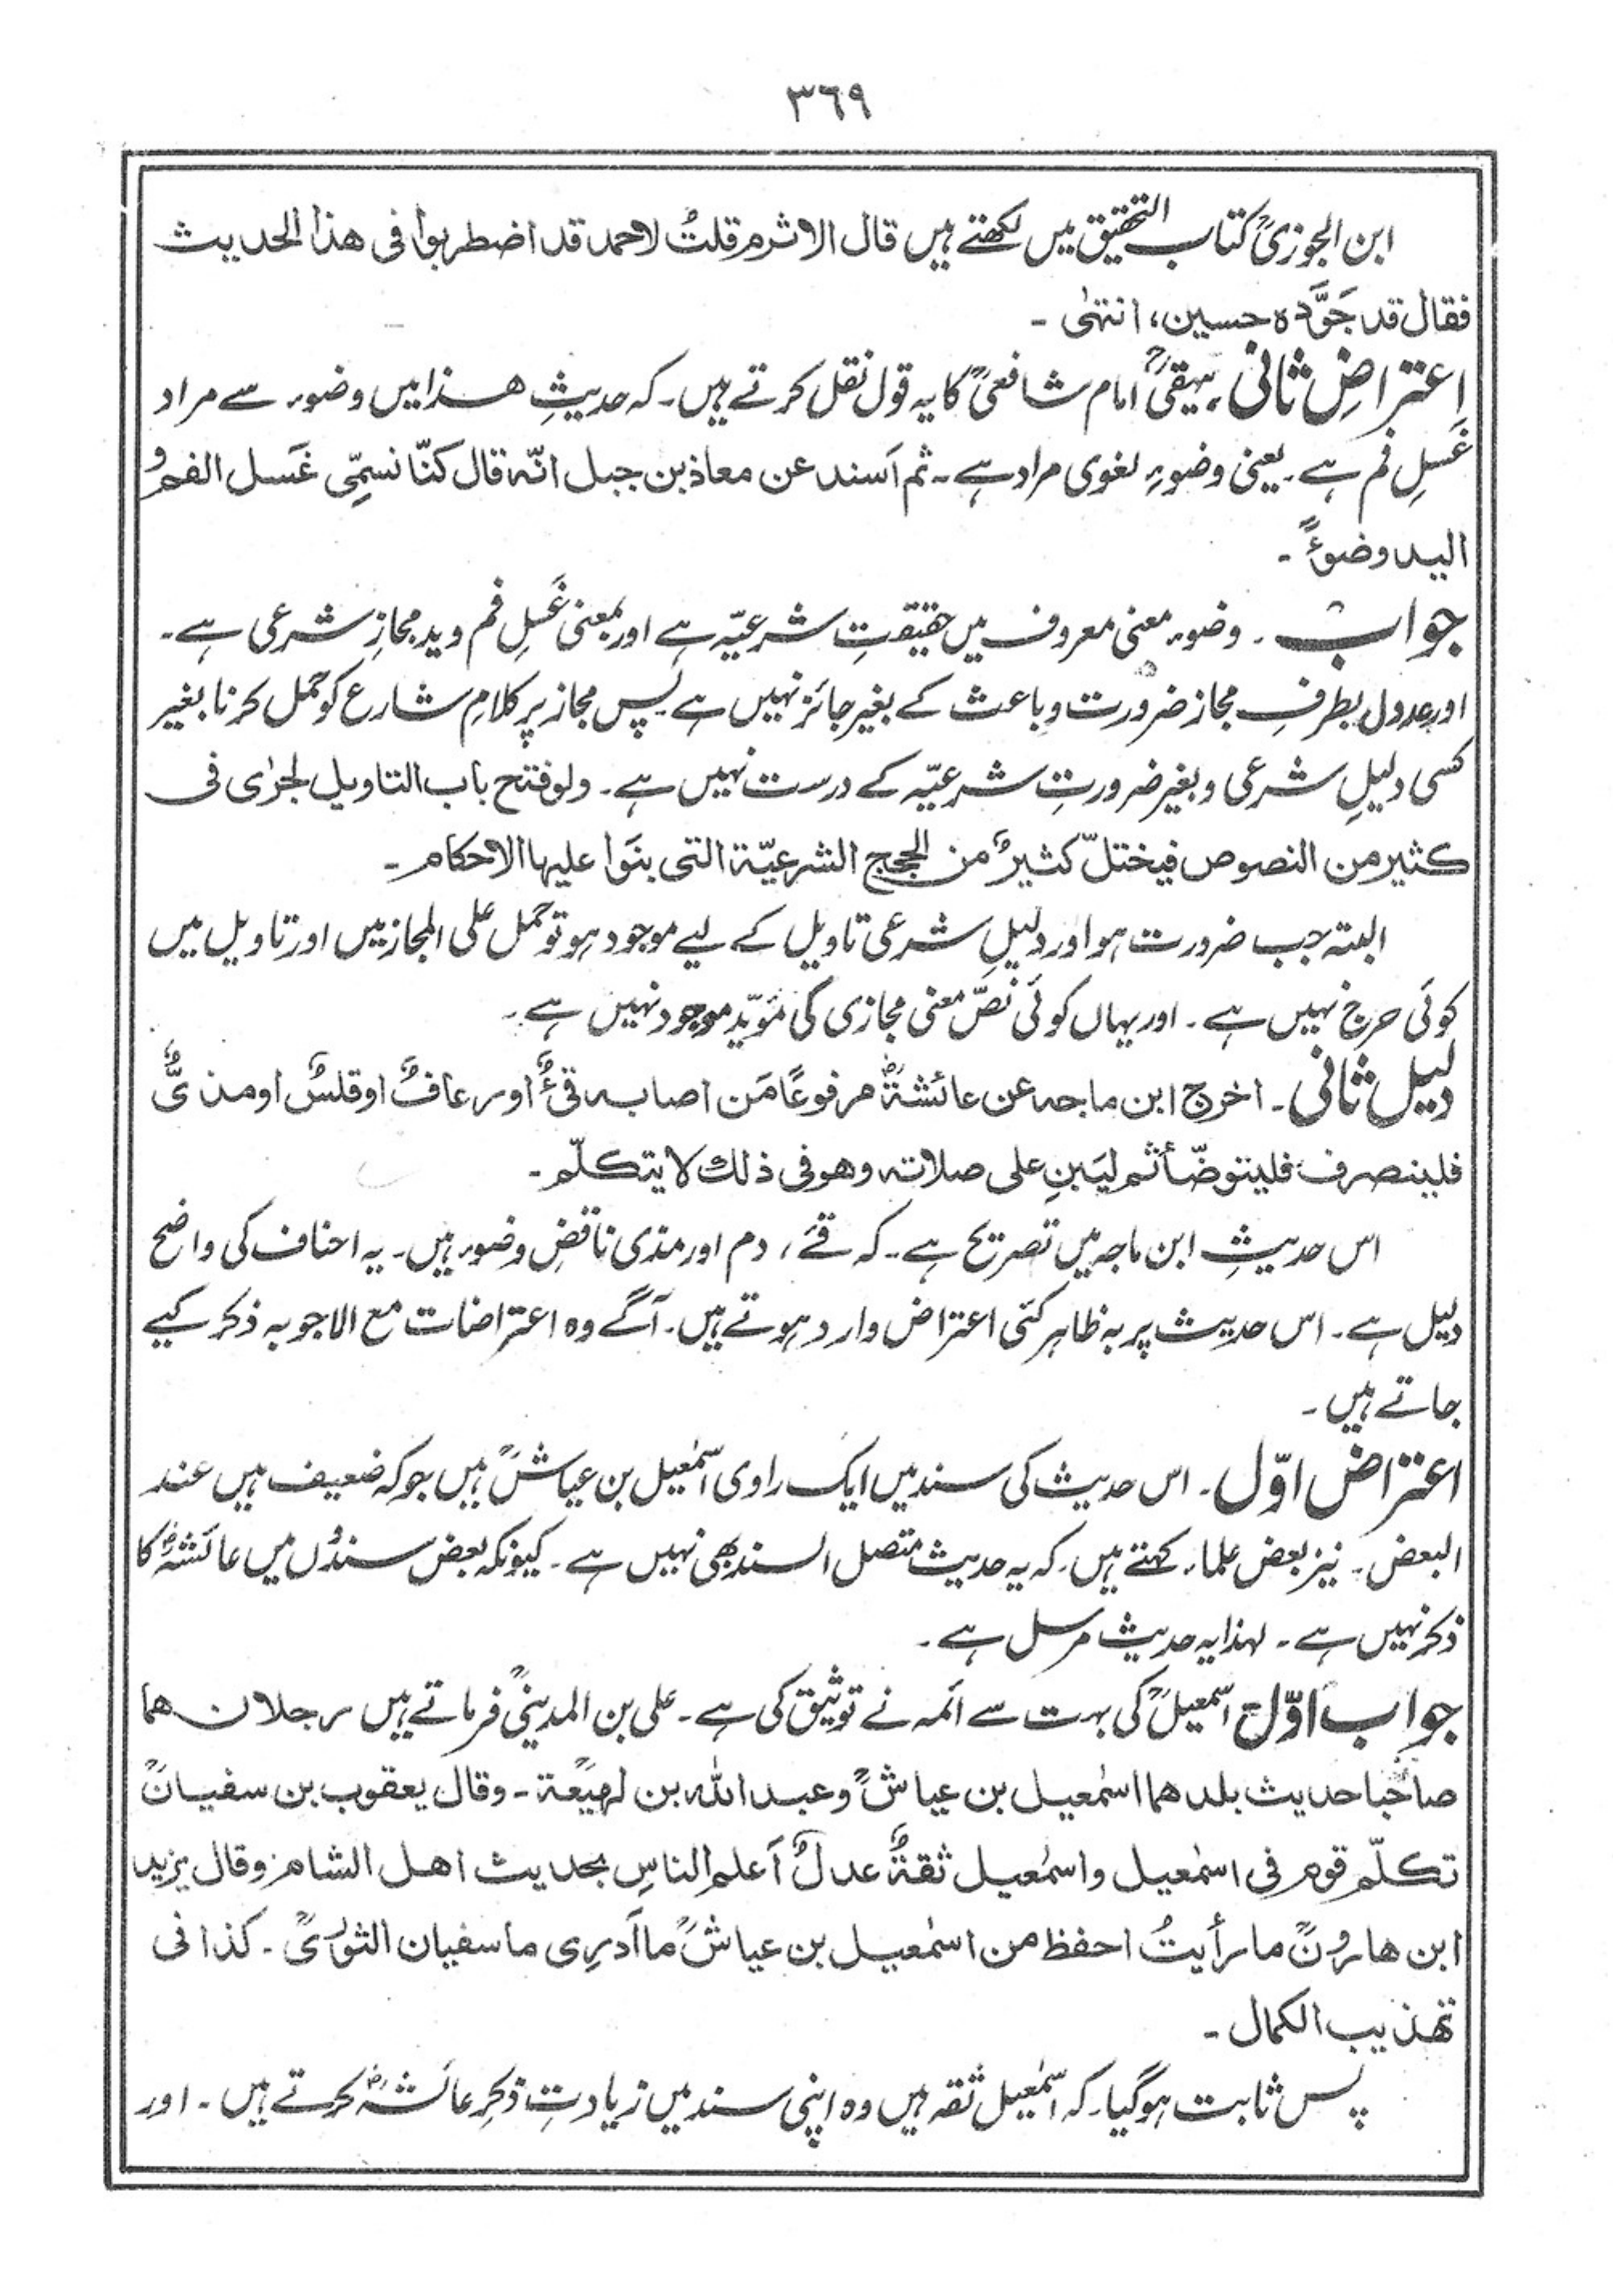 ٣٦٩
ابن الجوزیؒ کتاب التحقیق میں لکھتے ہیں قال الاثرم قلتُ لاحمد قد اضطربوا فی هذا الحدیث
فقال قد جَوَّدہ حسین، انتہٰی ۔
اعتراضِ ثانی ۔ بیہقیؒ امام شافعیؒ کا یہ قول نقل کرتے ہیں۔ کہ حدیثِ ھذا میں وضوء سے مراد
غَسلِ فم ہے۔ یعنی وضوءِ لغوی مراد ہے ۔ ثم اَسند عن معاذ بن جبل انّہ قال کنّا نسمِّی غَسل الفم و
الید وضوءً ۔
جواب ۔ وضوء معنی معروف میں حقیقتِ شرعیّہ ہے اور بمعنی غَسلِ فم وید مجازِ شرعی ہے۔
اور عدول بطرفِ مجاز ضرورت وباعث کے بغیر جائز نہیں ہے پس مجاز پر کلامِ شارع کو حمل کرنا بغیر
کسی دلیلِ شرعی و بغیر ضرورتِ شرعیّہ کے درست نہیں ہے۔ ولو فتح باب التاویل لجرٰی فی
کثیر من النصوص فیختلّ کثیرٌ من الحجج الشرعیّۃ التی بنَوا علیہا الاحکام ۔
البتہ جب ضرورت ہو اور دلیلِ شرعی تاویل کے لیے موجود ہو تو حمل علی المجاز میں اور تاویل میں
کوئی حرج نہیں ہے ۔ اور یہاں کوئی نصّ معنی مجازی کی مؤیّد موجود نہیں ہے ۔
دلیل ثانی ۔ اخرج ابن ماجہ عن عائشۃؓ مرفوعًا مَن اصابہ قیءٌ اور عافٌ او قلسٌ او مذیٌّ
فلینصرف فلیتوضّأ ثم لیَبنِ علی صلاتہ وھو فی ذلك لا یتکلّم ۔
اس حدیثِ ابن ماجہ میں تصریح ہے ۔ کہ قئے، دم اور مذی ناقضِ وضوء ہیں۔ یہ احناف کی واضح
دلیل ہے ۔ اس حدیث پر بہ ظاہر کئی اعتراض وارد ہوتے ہیں۔ آگے وہ اعتراضات مع الاجوبہ ذکر کیے
جاتے ہیں ۔
اعتراض اوّل ۔ اس حدیث کی سند میں ایک راوی اسمٰعیل بن عیاشؒ ہیں جو کہ ضعیف ہیں عند
البعض ۔ نیز بعض علماء کہتے ہیں۔ کہ یہ حدیث متصل السند بھی نہیں ہے ۔ کیونکہ بعض سندُں میں عائشہؓ کا
ذکر نہیں ہے ۔ لہذا یہ حدیث مرسل ہے ۔
جواب اوّل اسمٰعیلؒ کی بہت سے ائمہ نے توثیق کی ہے ۔ علی بن المدینیؒ فرماتے ہیں رجلان ھما
صاحبا حدیث بلدھما اسمٰعیل بن عیاشؒ و عبد اللہ بن لہیعۃؒ ۔ وقال یعقوب بن سفیانؒ
تکلّم قوم فی اسمٰعیل واسمٰعیل ثقۃٌ عدلٌ اَعلم الناسِ بحدیث اھل الشام وقال یزید
ابن ھارونؒ ما رأیتُ احفظ من اسمٰعیل بن عیاشؒ ما اَدرِی ما سفیان الثوریؒ ۔ کذا فی
تہذیب الکمال ۔
پس ثابت ہوگیا۔ کہ اسمٰعیل ثقہ ہیں وہ اپنی سند میں زیادتِ ذکرِ عائشہؓ کرتے ہیں ۔ اور